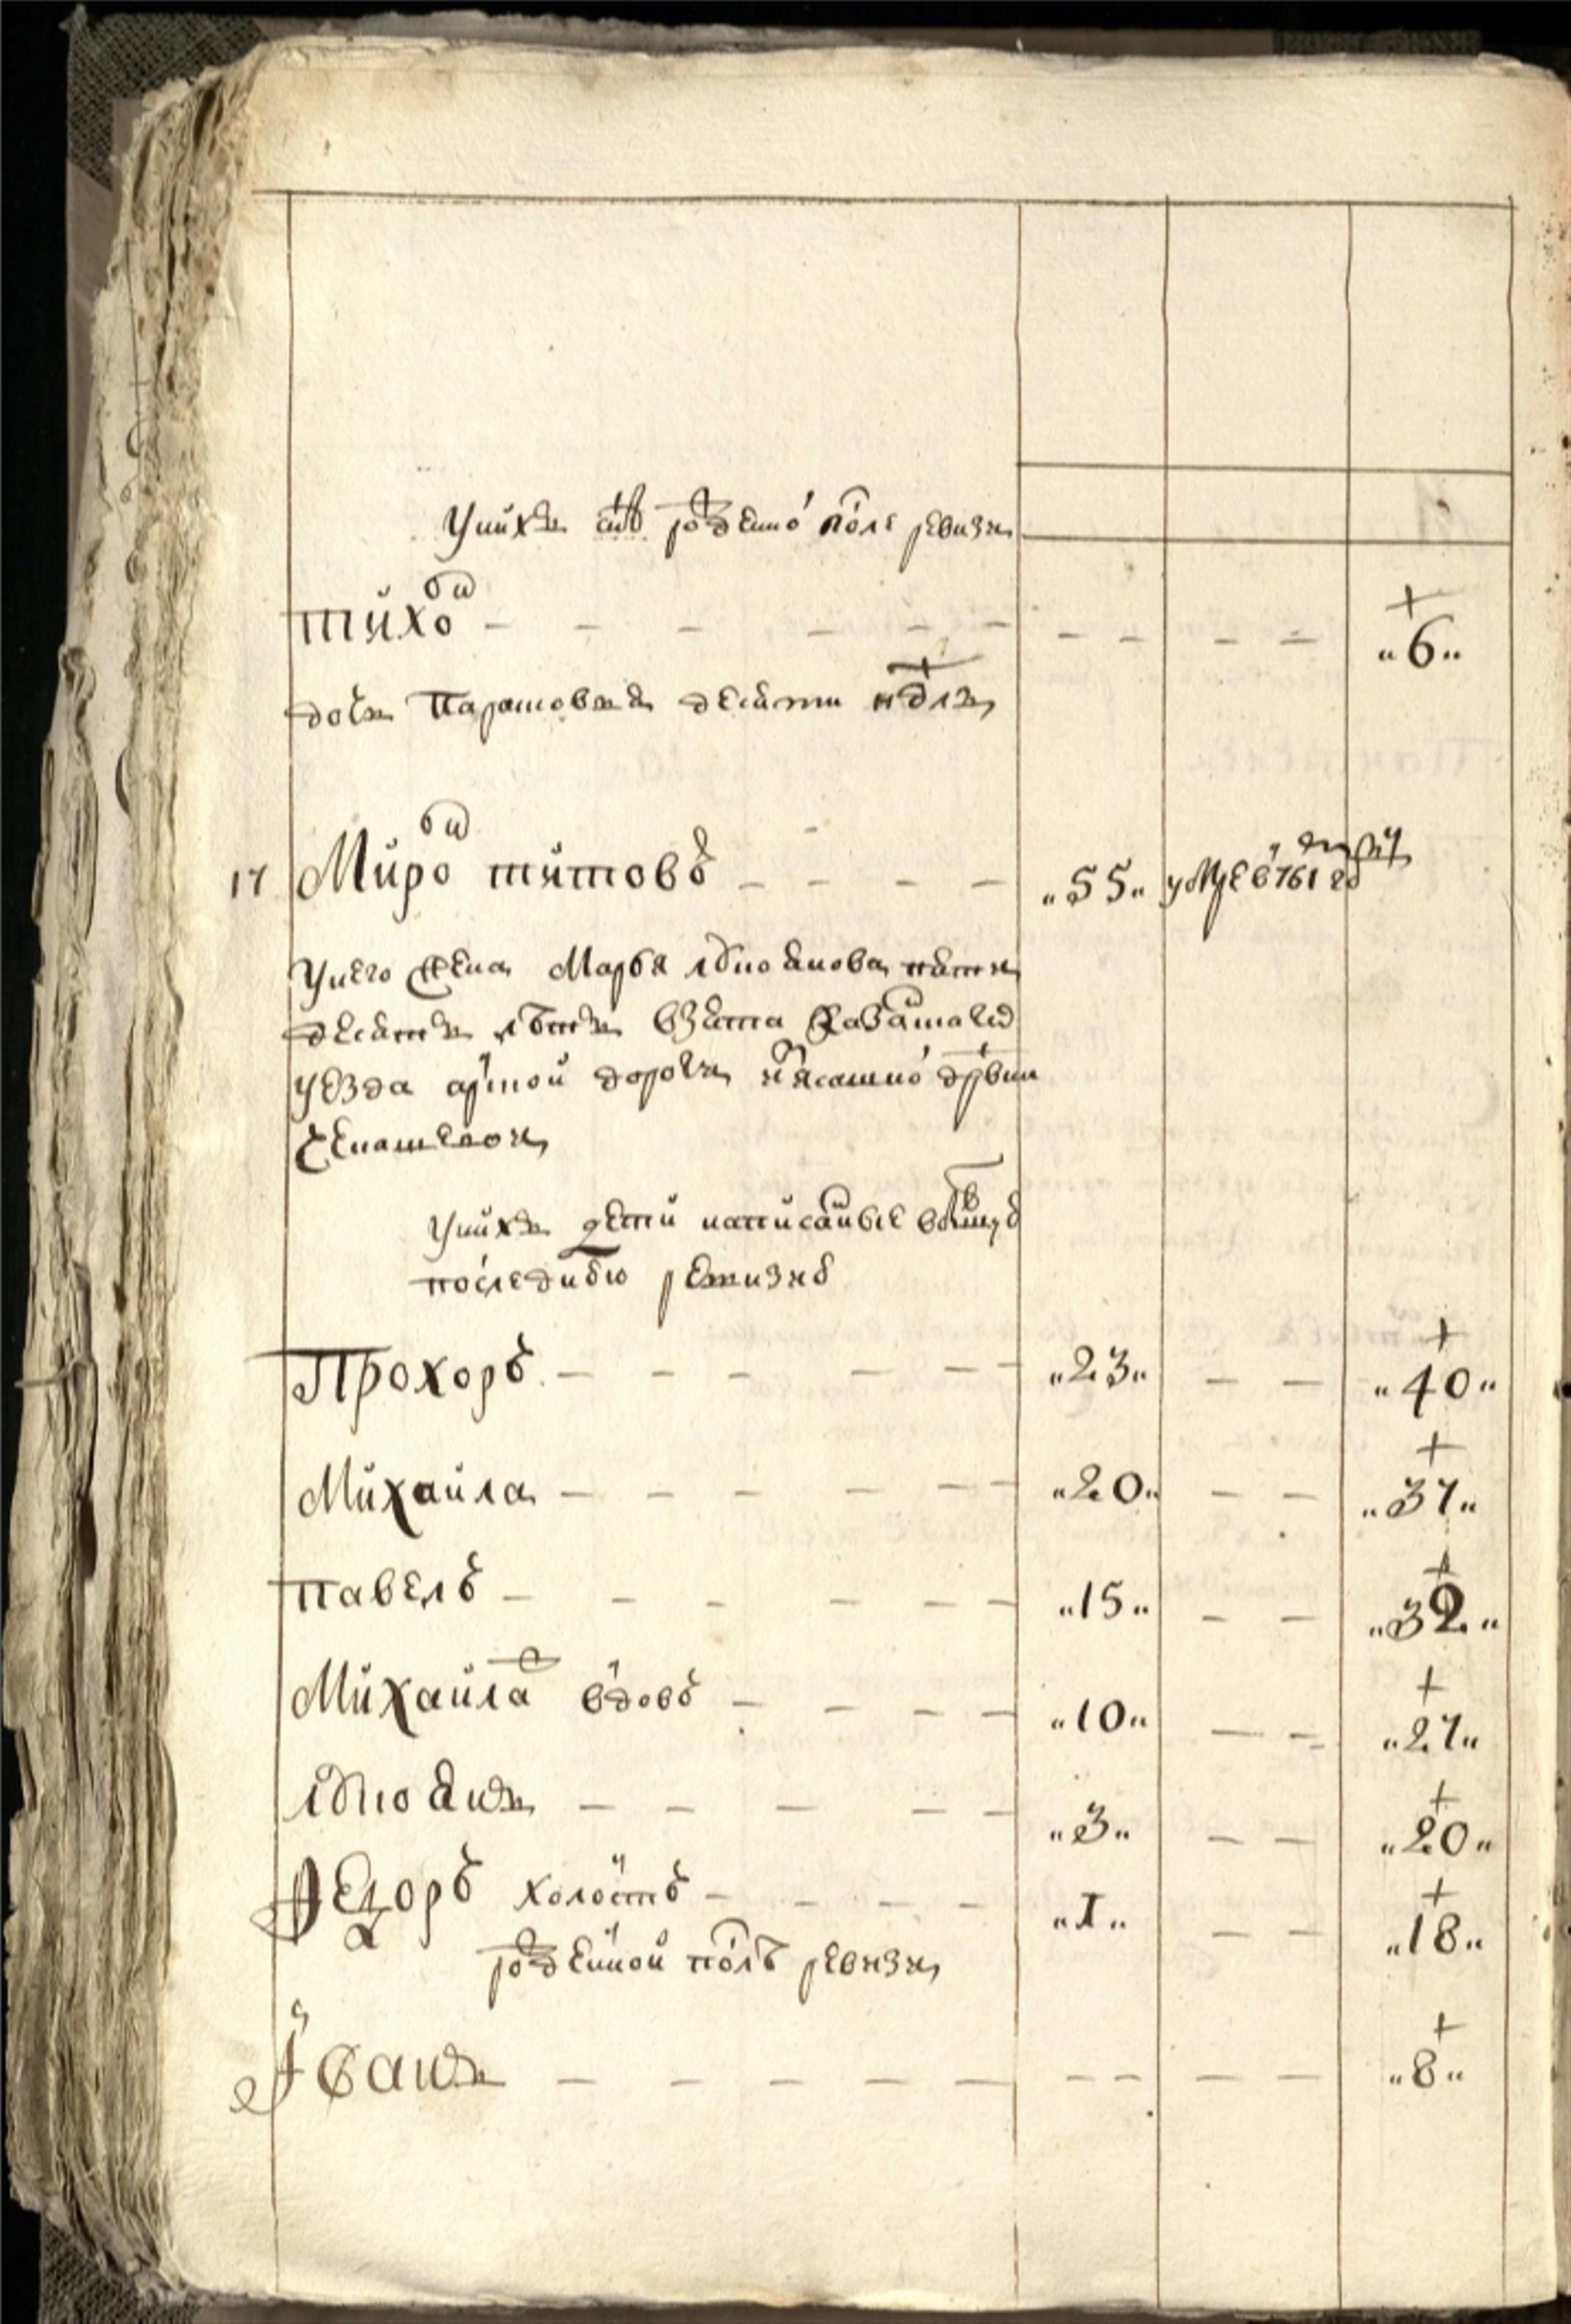 у них сынъ рожденно после ревизи
тихонъ - - - - - - - - - - „6„
дочь Парасковья десяти нѣдль
17 Миронъ титовъ - - - - „55„ умре в 1761 год
у него жена Марья ивановна пяти
десятъ лѣтъ взята Казанского
уезда арской дороги из ясашной дрвни
у них дети написанные в
последнюю ревизию
Прохоръ - - - - - - „23„ - - „40„
Михаила - - - - - - „20„ - - „37„
павелъ - - - - - - „15„ - - „32„
Михаила вдовъ - - - - „10„ - - „27„
- - - - - „3„ - - „20„
Федоръ холостъ - - - - „1„ - - „18„
рожденной послѣ ревизи
Иванъ - - - - - - - - - „8„